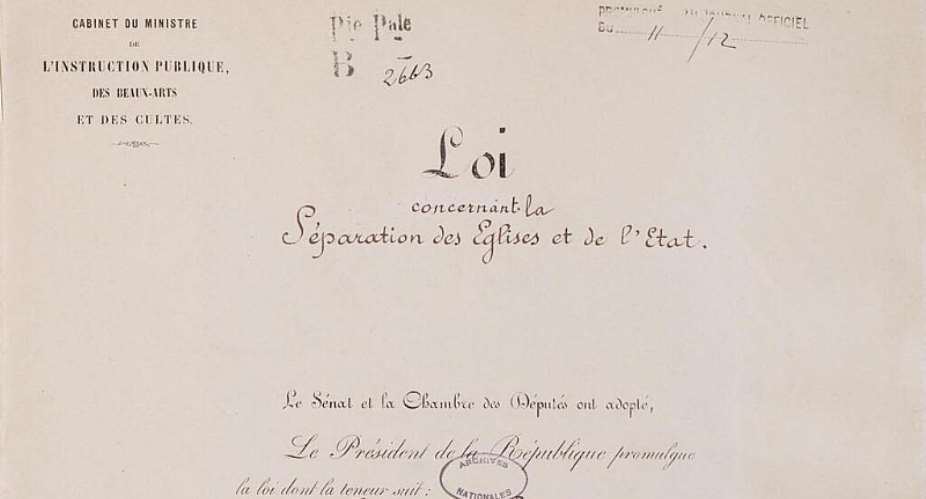 CABINET DU MINISTRE
DE
L'INSTRUCTION PUBLIQUE,
DES BEAUX-ARTS
ET DES CULTES.
Pale
B 2663
OFFICIEL
11/12
Loi
concernant la
Séparation des Eglises et de l'Etat.
Le Sénat et la Chambre des Députés ont adopté,
Le Président de la République promulgue
la loi dont la teneur suit :
ARCHIVES
NATIONALES